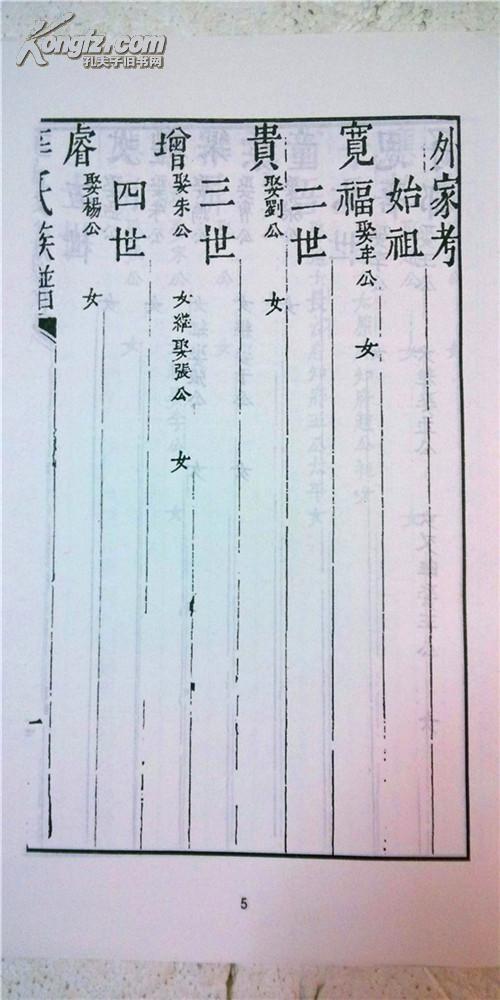 Kongfz.com
孔夫子旧书网
外家考
始祖
寛福娶牟公 女
二世
貴娶劉公 女
三世
增娶朱公 女 繼娶張公 女
四世
睿娶楊公 女
氏族譜
一
5